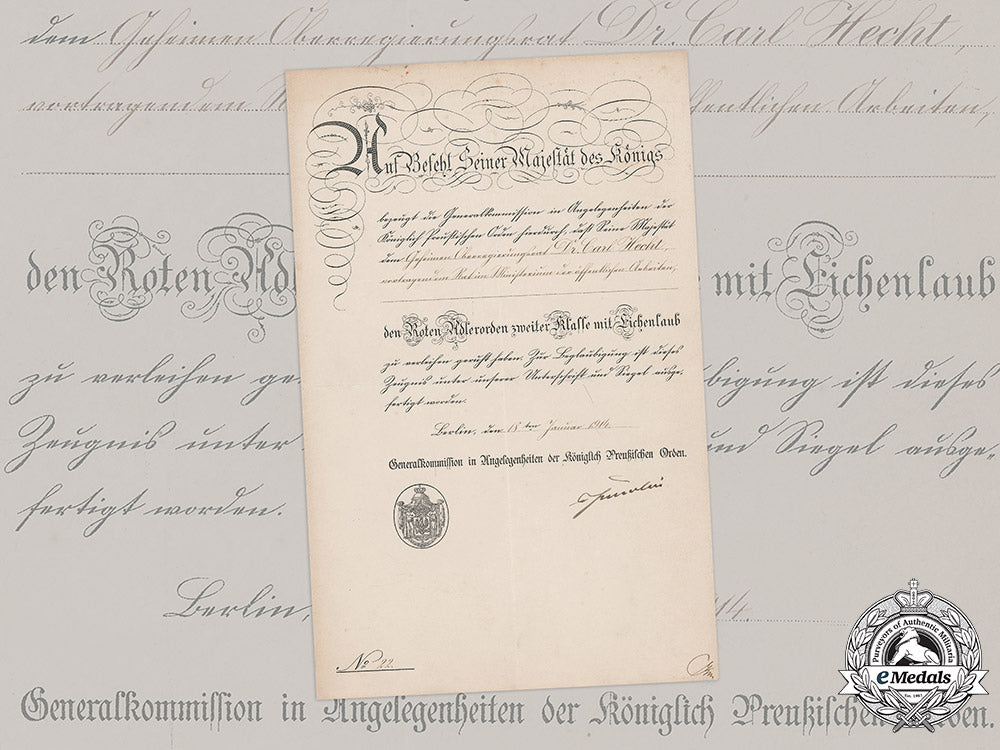 dem Geheimen Oberregierungsrat Dr. Carl Hecht,
vortragendem
fentlichen Arbeiten,
den Roten Adl
mit Eichenlaub
zu verleihen ge
bigung ist dieses
Zeugnis unter
und Siegel ausge-
fertigt worden.
Berlin,
14.
Generalkommission in Angelegenheiten der Königlich Preußischen Orden.
Auf Befehl Seiner Majestät des Königs
bezeugt die Generalkommission in Angelegenheiten der
Königlich Preußischen Orden hierdurch, daß Seine Majestät
dem Geheimen Oberregierungsrat Dr. Carl Hecht,
vortragendem Rat im Ministerium der öffentlichen Arbeiten,
den Roten Adlerorden zweiter Klasse mit Eichenlaub
zu verleihen geruht haben. Zur Beglaubigung ist dieses
Zeugnis unter unserer Unterschrift und Siegel ausge-
fertigt worden.
Berlin, den 18ten Januar 1914.
Generalkommission in Angelegenheiten der Königlich Preußischen Orden.
No 22.
Purveyors of Authentic Militaria
eMedals